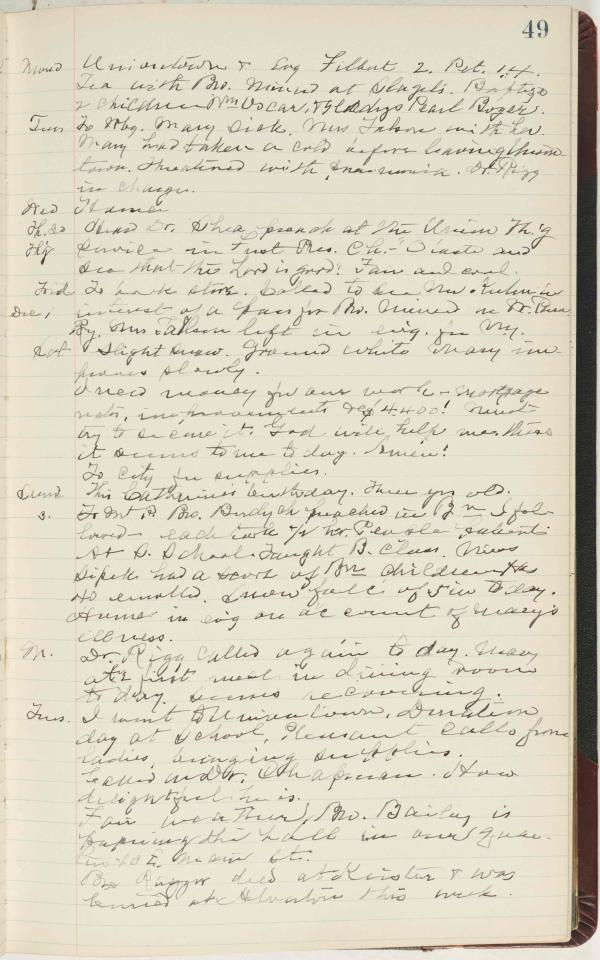 49
Mond Uniontown & Evg Filbert 2. Pet. 1.4.
Tea with Bro. Mined at Slagels. Baptize
2 children Wm Oscar & Gladys Pearl Bozer.
Tues To Mary Sick. Mrs with her
Mary had taken a cold before leaving
town. threatened with pneumonia. Dr. Rigg
in charge.
Wed Home
Th. Hear Dr. Shea preach at the Union Th.'g
Service in First Pres. Ch. - "O taste and
see that the Lord is good! Fair and cool.
Frid To book store. Called to see Mr. in
Dec 1 interest of a pass for Bro. Mined on
Ry. Mrs left in evg. for
Sat Slight snow. Ground white Mary im-
proves slowly.
I need money for our work - mortgage
notes, improvements of 4.400! Must
try to secure it. God will help me thus
it seems to me to day. Amen!
To city for supplies.
Sund This Catherines birthday. Three yrs old.
3. To Mt. P. Bro. preached in I fol-
lowed - each took 1/2 hr. People patient
At S. School Taught B. Class. Miss
had a score of children
40 enrolled. Snow fall of 5 in to day.
Home in evg on account of Mary's
illness.
M. Dr. Rigg called again to day. Mary
ate first meal in dining room
to day. Seems recovering.
Tues. I went to Uniontown, Donation
day at School, Pleasant calls from
ladies, bringing supplies.
Called on Dr. Chapman. How
delightful he is.
Fair weather, Bro. Bailey is
papering the hall in our
E. Main St.
Bro died at & was
buried at Alverton this week.